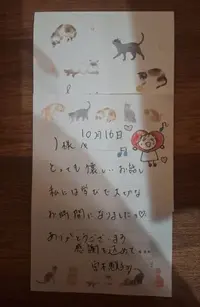 10月16日
様へ
とっても懐しいお話し
私には学びと大切な
お時間になりました♡
ありがとうございます
感謝を込めて...